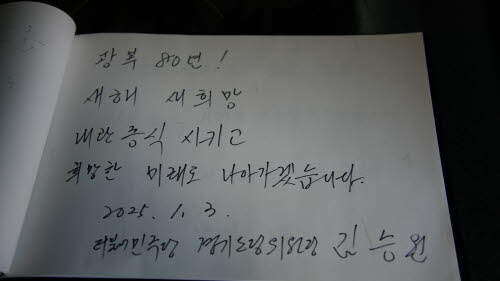 광복 80년!
새해 새희망
내란 종식 시키고
희망찬 미래로 나아가겠습니다.
2025. 1. 3.
더불어민주당 경기도당위원장 김승원